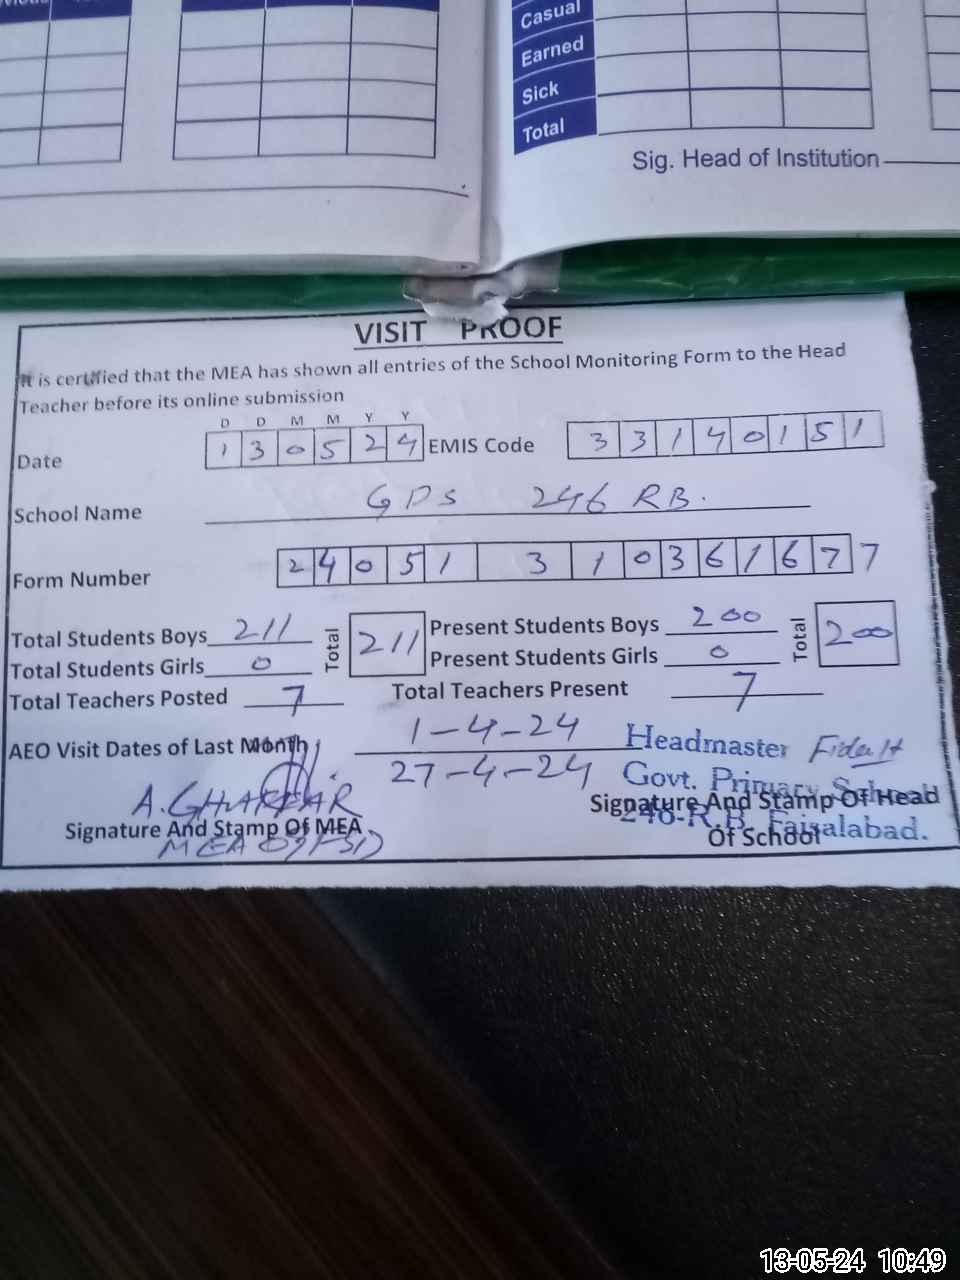 Casual
Earned
Sick
Total
Sig. Head of Institution
VISIT PROOF
It is certified that the MEA has shown all entries of the School Monitoring Form to the Head
Teacher before its online submission
D D M M Y Y
Date 1 3 0 5 2 4 EMIS Code 3 3 1 4 0 1 5 1
School Name GPS 246 RB.
Form Number 2 4 0 5 1 3 1 0 3 6 1 6 7 7
Total Students Boys 211 Total 211 Present Students Boys 200 Total 200
Total Students Girls 0 Present Students Girls 0
Total Teachers Posted 7 Total Teachers Present 7
AEO Visit Dates of Last Month 1-4-24
27-4-24
Headmaster
Govt. Primary School
246-R.B. Faisalabad.
A.GHAFFAR
Signature And Stamp Of MEA
MEA
Signature And Stamp Of Head
Of School
13-05-24 10:49